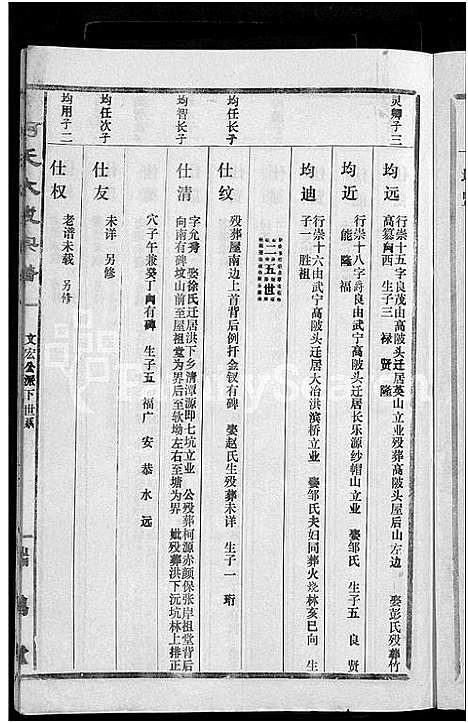 灵卿子三
均远
行崇十五字良茂由高陂头迁居英山立业殁葬高陂头屋后山左边 娶彭氏殁葬竹
高墓向西 生子三 禄 贤 隆
均近
行崇十八字爵良由武宁高陂头迁居长乐源纱帽山立业 娶邹氏 生子五 良 贤
能 隆 福
均迪
行崇十六由武宁高陂头迁居大冶洪滨桥立业 娶邹氏夫妇同葬火烧林亥巳向 生
子一 胜祖
二五世
均任长子
仕纹
殁葬屋南边上首背后倒扦金钗有碑 娶赵氏生殁葬未详 生子一 珩
均智长子
仕清
字允秀 娶徐氏迁居洪下乡清潭源即七坑立业 公殁葬柯源赤颜保张岸祖堂背后
向南有碑坟山前至屋祖堂为界后至软坳左右至塘为界 妣殁葬洪下沉坑林上排正
穴子午兼癸丁向有碑 生子五 福广 安 恭 水 远
均任次子
仕友
未详 另修
均用子二
仕权
老谱未载 另修
文宏公派下世系
堂